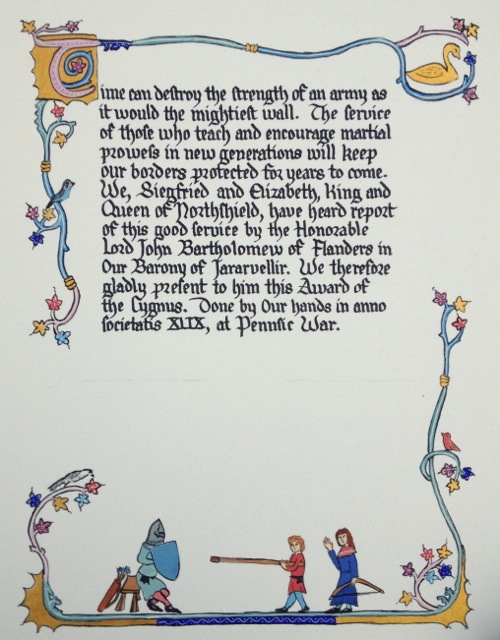 Time can destroy the strength of an army as
it would the mightiest wall. The service
of those who teach and encourage martial
prowess in new generations will keep
our borders protected for years to come.
We, Siegfried and Elizabeth, King and
Queen of Northshield, have heard report
of this good service by the Honorable
Lord John Bartholomew of Flanders in
Our Barony of Jararvellir. We therefore
gladly present to him this Award of
the Cygnus. Done by Our hands in anno
societatis XLIX, at Pennsic War.